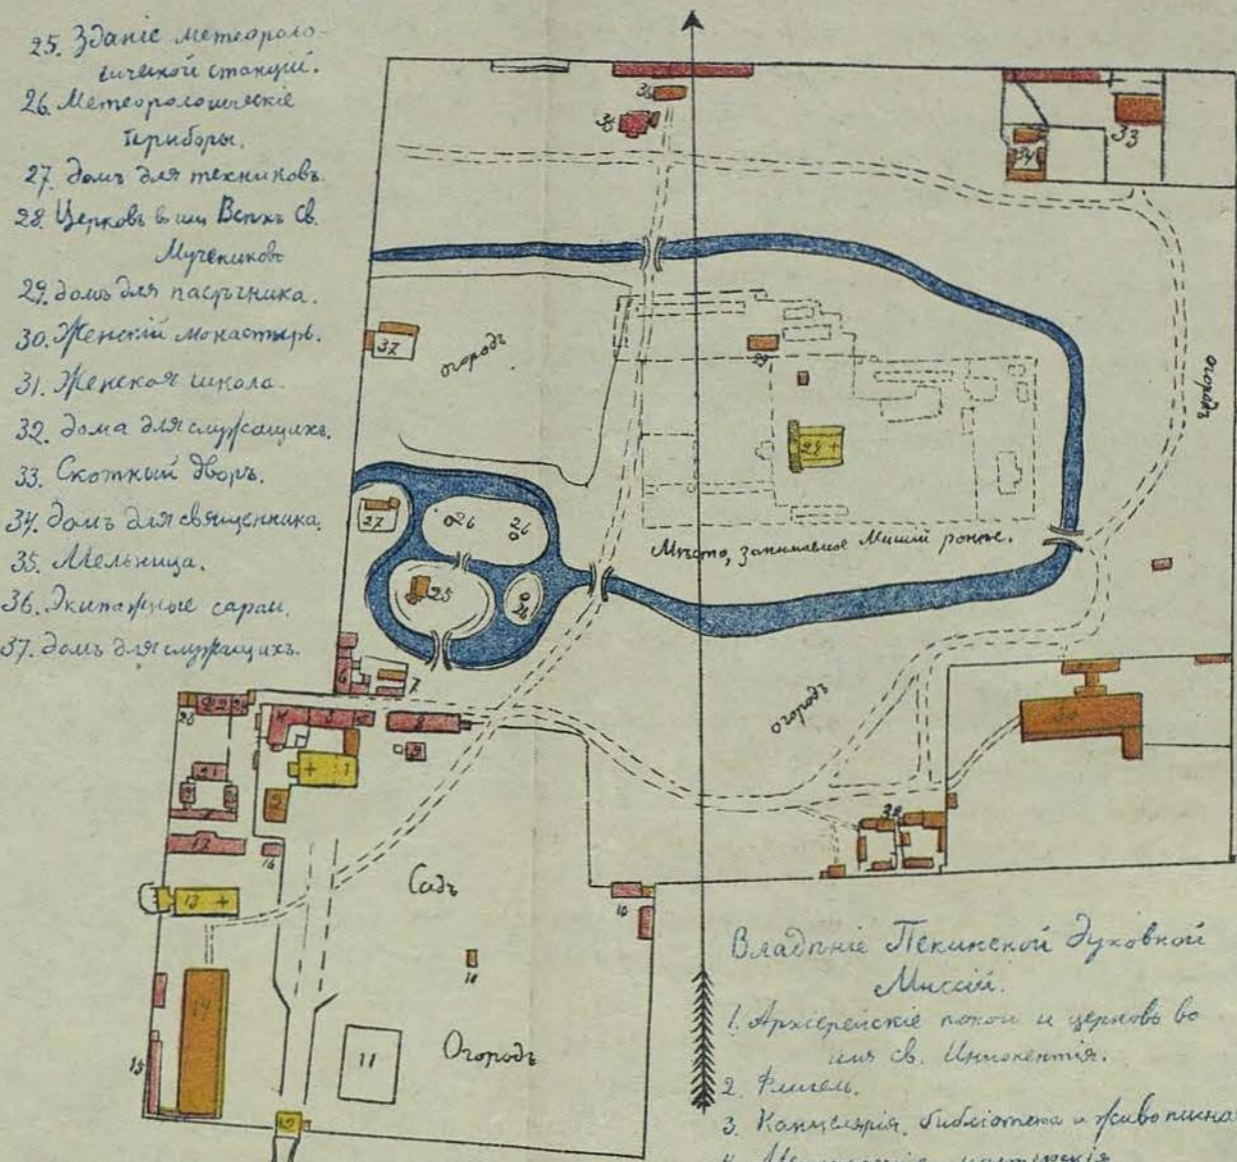 25. Зданіе метеороло-
гической станціи.
26. Метеорологическіе
приборы.
27. домъ для техниковъ.
28. Церковь во имя Всѣхъ Св.
Мучениковъ
29. домъ для пасѣчника.
30. Женскій монастырь.
31. Женская школа.
32. дома для служащихъ.
33. Скотный дворъ.
34. домъ для священника.
35. Мельница.
36. Экипажные сараи.
37. домъ для служащихъ.
36
35
33
34
37
огородъ
огородъ
29
28
27
26
26
25
26
Мѣсто, занимаемое Миссіей ранѣе.
огородъ
6
7
8
9
4
3
1
2
21
17
16
13
14
15
Садъ
10
10
11
Огородъ
32
Владѣніе Пекинской Духовной
Миссіи.
1. Архіерейскіе покои и церковь во
имя св. Иннокентія.
2. Флигель.
3. Канцелярія, библіотека и живописна
4. мастерскія